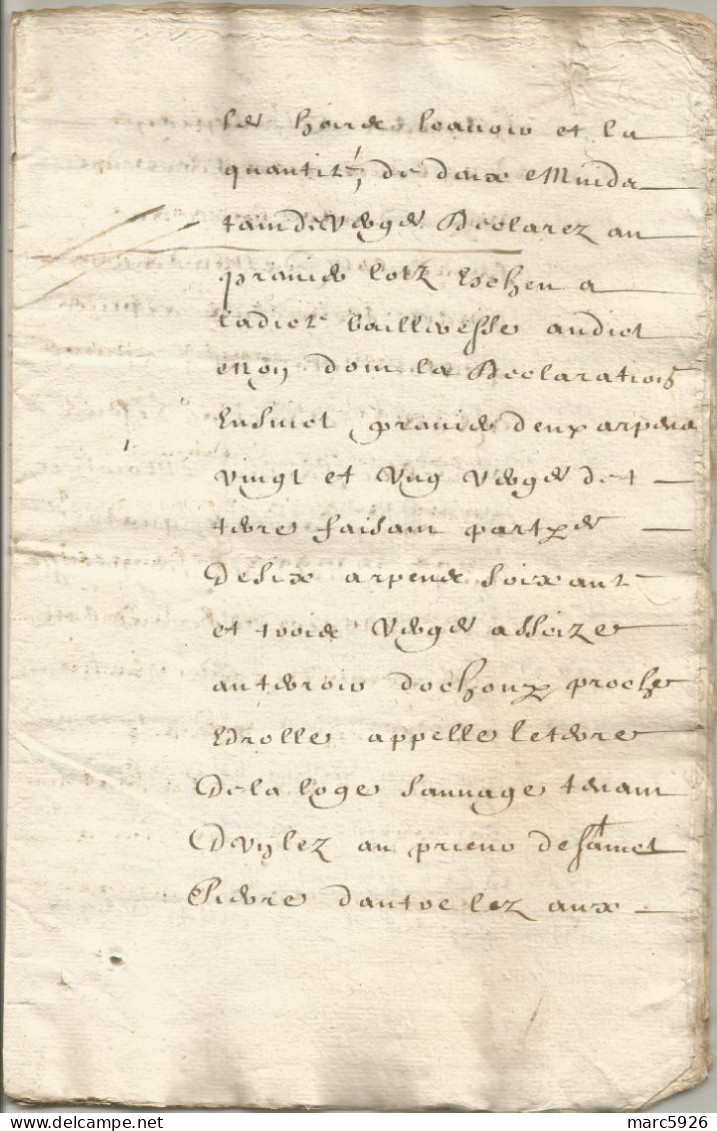 les hoirs beauvois et la
quantité de
verges declarez au
premier lotz escheu a
ladict baillivesse audict
nom dont la declaration
ensuict premier deux arpens
vingt et ung verges de
terre faisant partye
de six arpens soixant
et trois verges assize
au terroir dochoux proche
edrolle appelle le terre
de la loge sauvage tenant
dun lez au prieur de sainct
Pierre dautre lez aux
marc5926